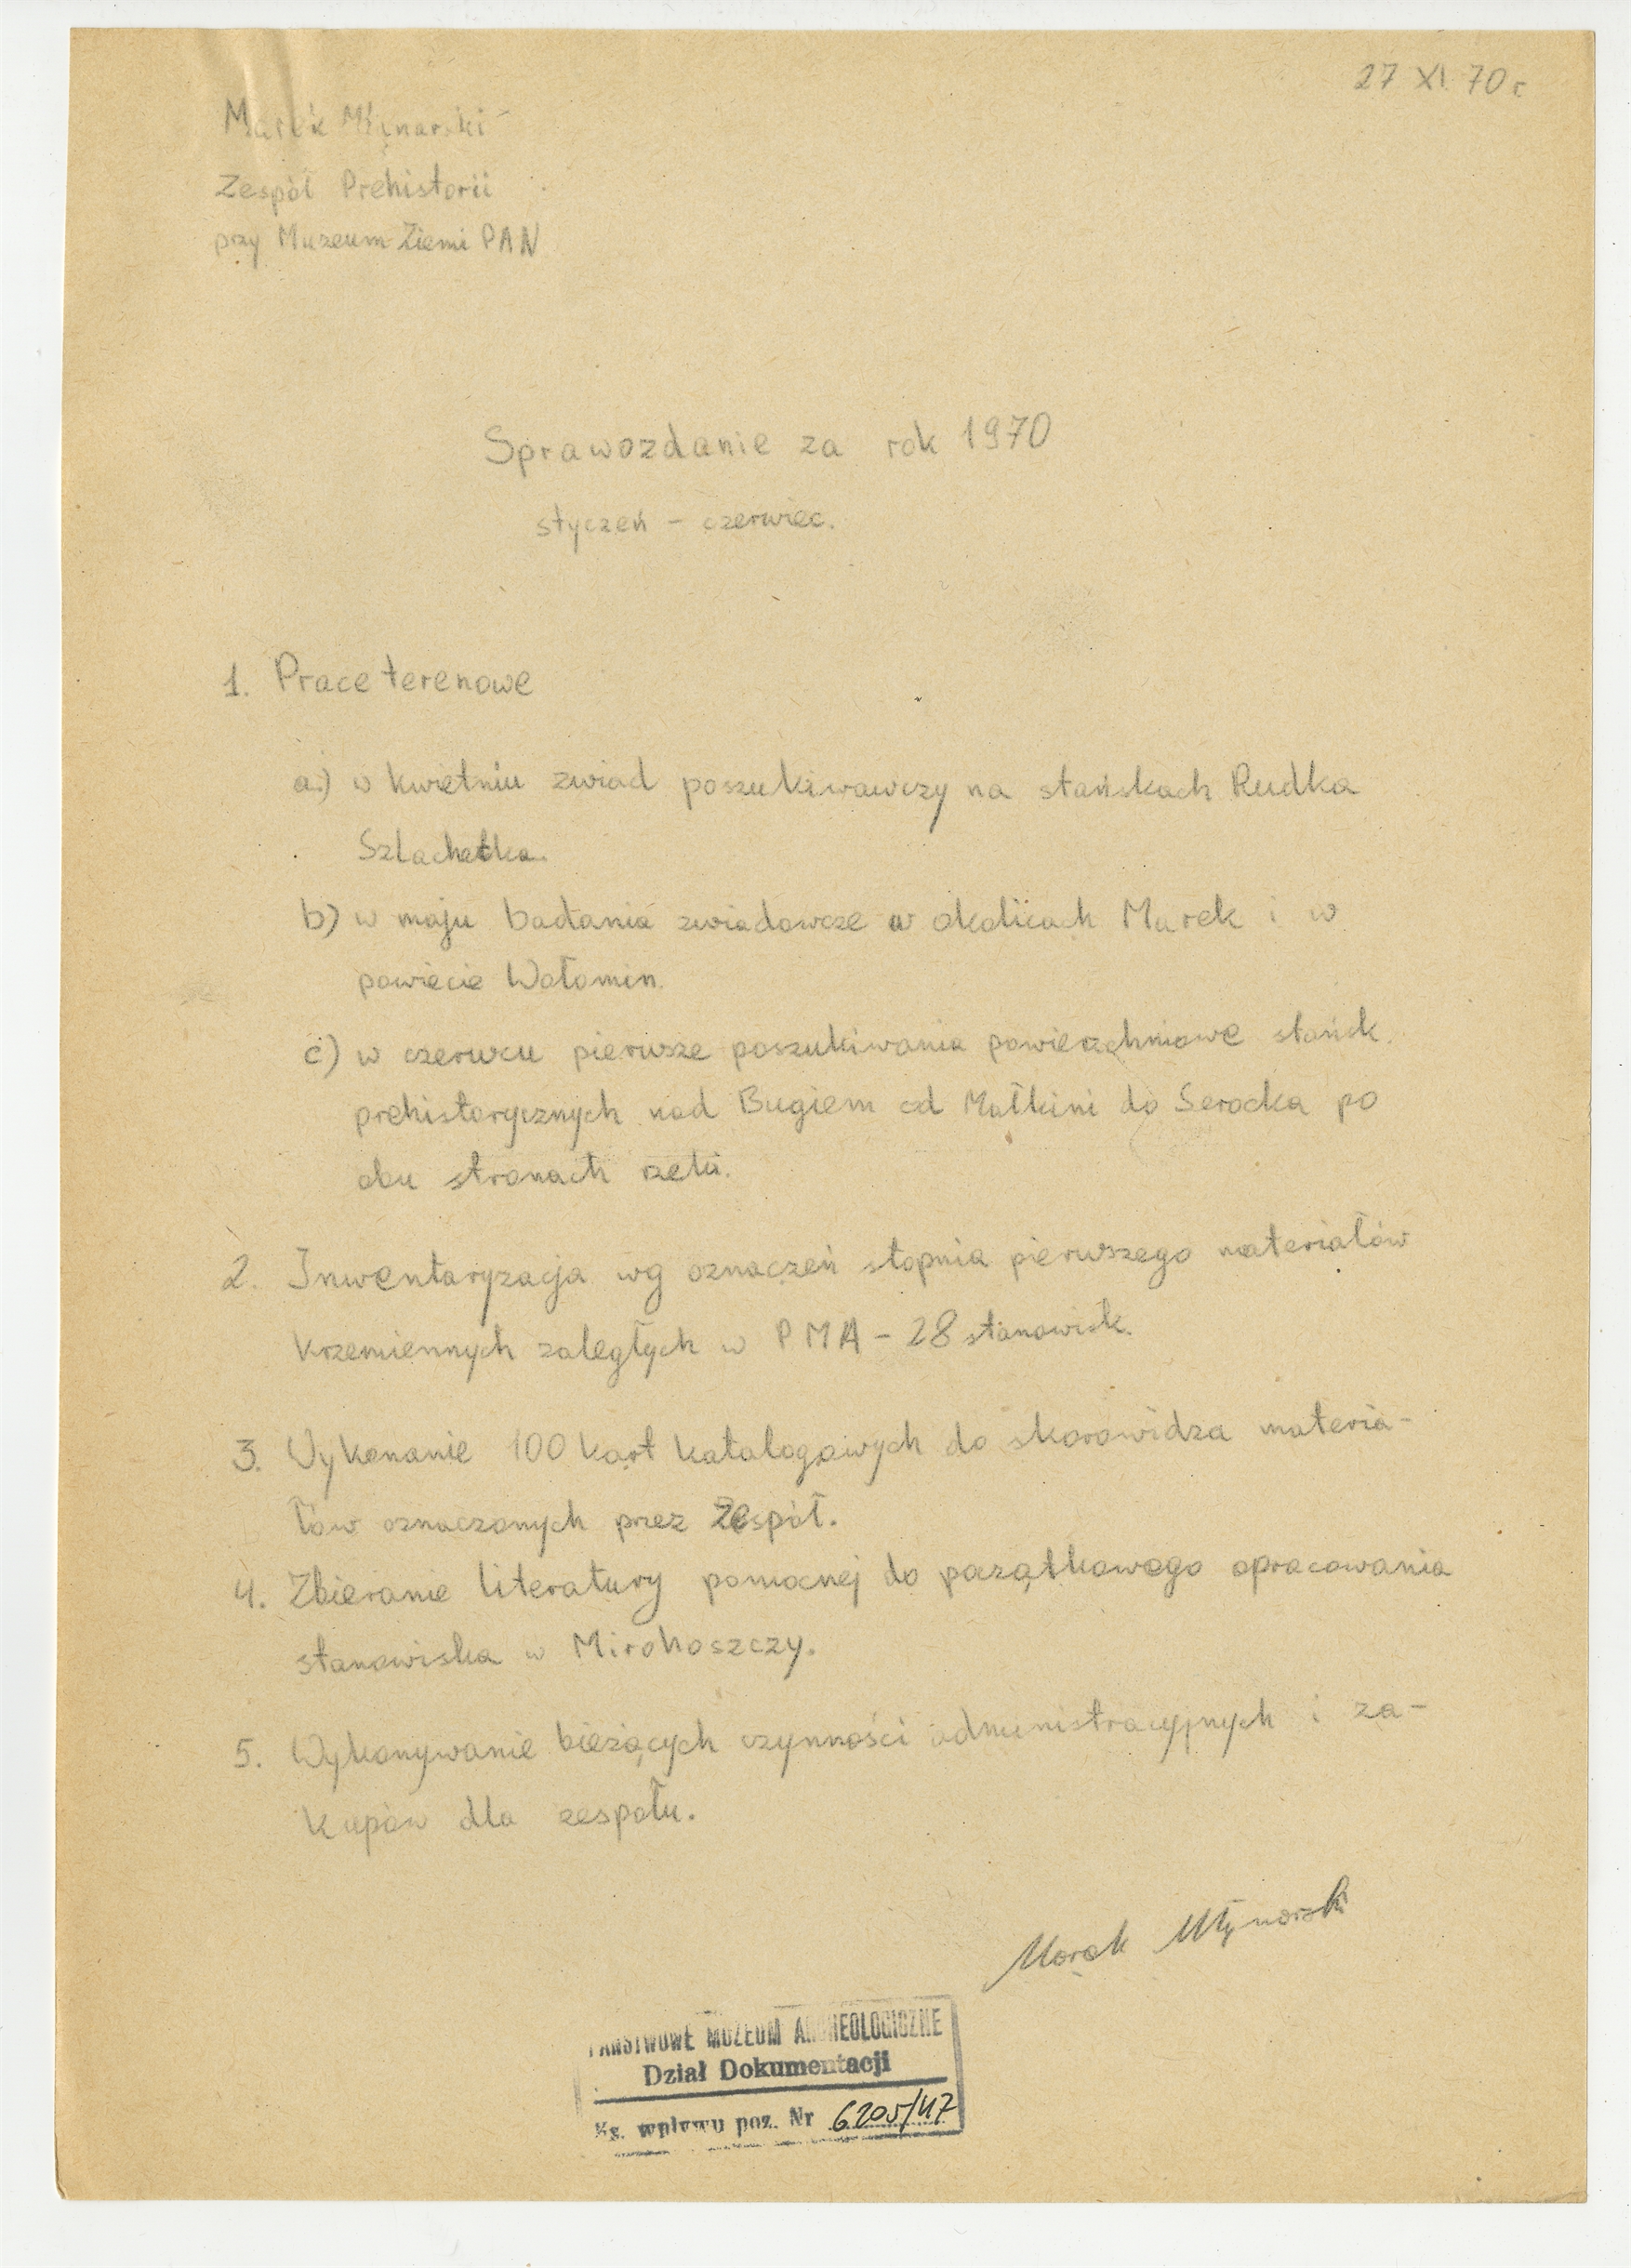 27 XI 70 r.
Marek Młynarski
Zespół Prehistorii
przy Muzeum Ziemi PAN
Sprawozdanie za rok 1970
styczeń - czerwiec.
1. Prace terenowe
a.) w kwietniu zwiad poszukiwawczy na stańskach Rudka
Szlachetka.
b) w maju badania zwiadowcze w okolicach Marek i w
powiecie Wołomin.
c) w czerwcu pierwsze poszukiwania powierzchniowe stańsk.
prehistorycznych nad Bugiem od Małkini do Serocka po
obu stronach rzeki.
2. Inwentaryzacja wg oznaczeń stopnia pierwszego materiałów
krzemiennych zaległych w PMA - 28 stanowisk.
3. Wykonanie 100 kart katalogowych do skorowidza materia-
łów oznaczonych przez Zespół.
4. Zbieranie literatury pomocnej do początkowego opracowania
stanowiska w Mirohoszczy.
5. Wykonywanie bieżących czynności administracyjnych i za-
kupów dla zespołu.
Marek Młynarski
PAŃSTWOWE MUZEUM ARCHEOLOGICZNE
Dział Dokumentacji
Ks. wpływu poz. Nr 6205/47